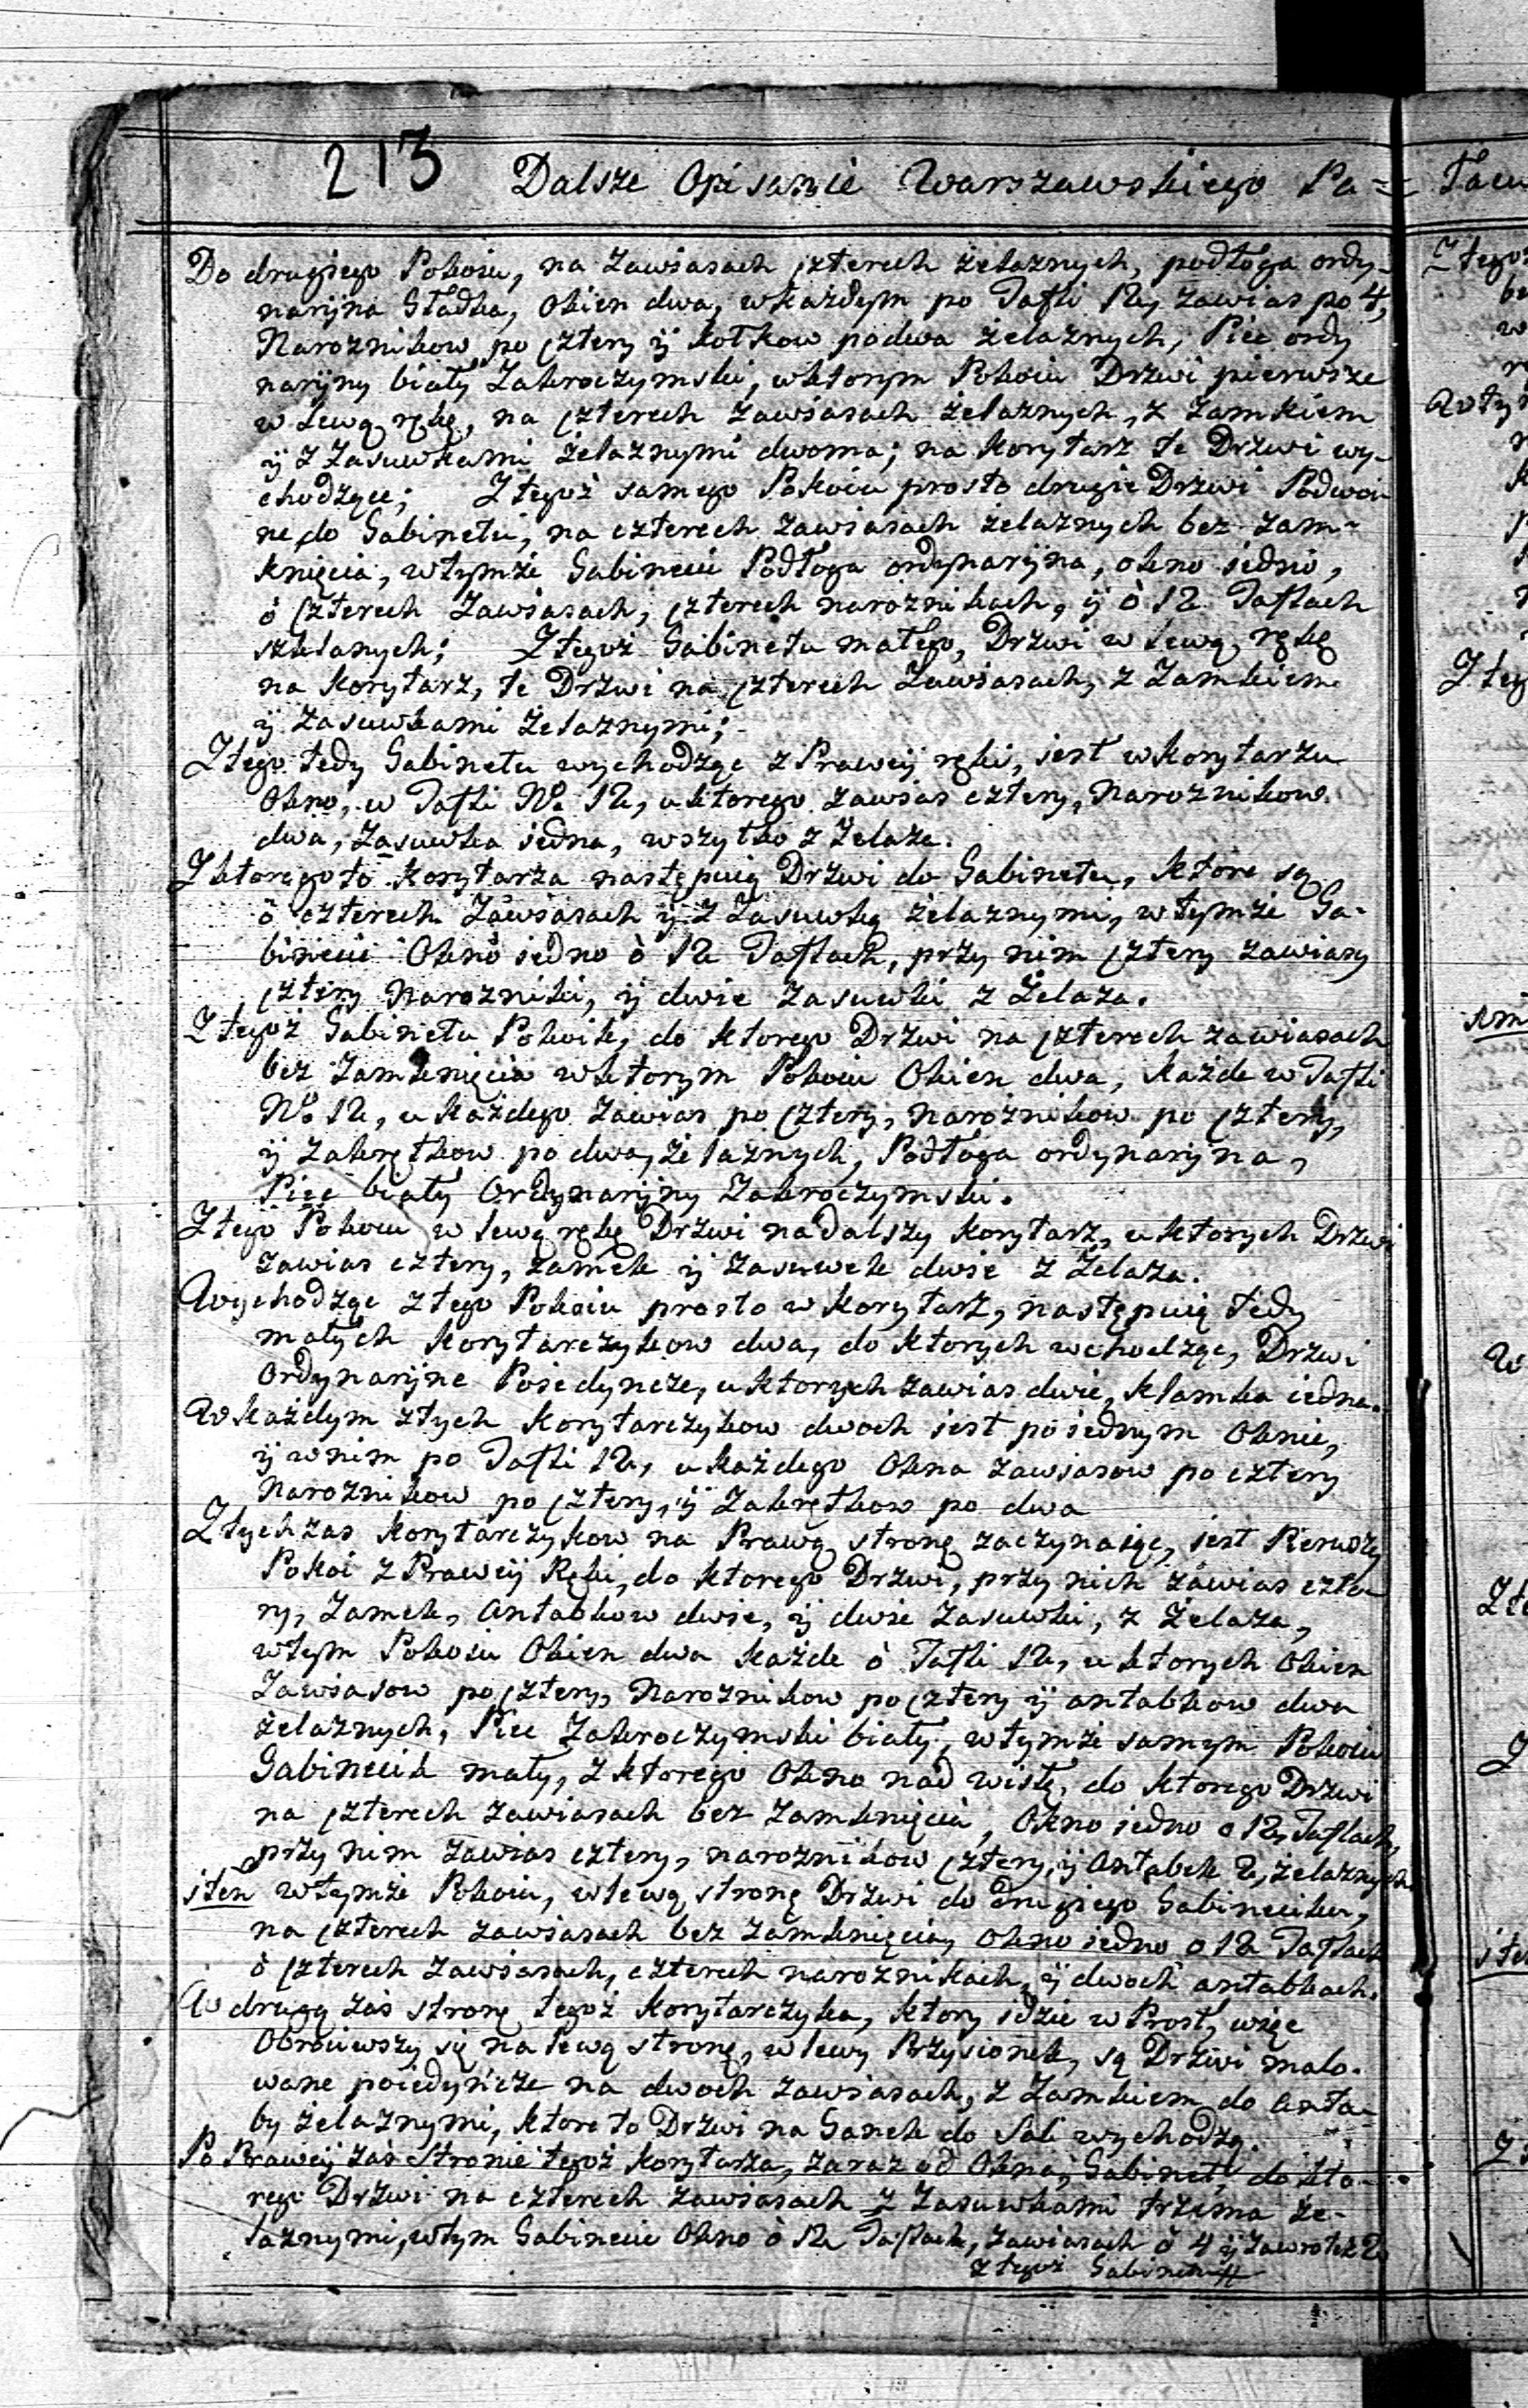 213 Dalsze Opisanie Warszawskiego Pa=
Do drugiego Pokoiu, na zawiasach czterech żelaznych, podłoga ordy-
narijna Gładka, Okien dwa, w każdym po Tafli 12, zawias po 4,
Naroznikow po cztery ÿ kołkow po dwa żelaznych, Piec ordy
narijny biały Zakroczymski, w ktorym Pokoiu Drzwi pierwsze
w lewą rękę, na czterech zawiasach żelaznych, z zamkiem
ÿ z Zasuwkami żelaznymi dwoma; na Korytarz te Drzwi wy-
chodzące; Z tegoż samego Pokoiu prosto drugie Drzwi Podwoi
ne do Gabinetu, na czterech zawiasach żelaznych bez zam-
knięcia, w tymże Gabinecie Podłoga ordynarijna, okno iedno,
ò czterech zawiasach, czterech naroznikach, ÿ ò 12 Taflach
szklanych; Z tegoż Gabinetu małego, Drzwi w lewą rękę
na Korytarz, te Drzwi na czterech Zawiasach, z Zamkiem
ÿ zasuwkami żelaznymi;
Z tego tedy Gabinetu wychodząc z Prawey ręki, iest w Korytarzu
Okno, w Tafli No 12, u ktorego zawias cztery, Naroznikow
dwa, Zasuwka iedna, wszytko z Żelaza.
Z ktorego to Korytarza następuią Drzwi do Gabinetu, ktore są
ò czterech zawiasach ÿ z Zasuwką żelaznymi, w tymże Ga-
binecie Okno iedno ò 12 Taflach, przy nim cztery zawiasy
cztery Narozniki, ÿ dwie zasuwki z Żelaza.
Z tegoż Gabinetu Pokoik, do ktorego Drzwi na czterech zawiasach
bez zamknięcia w ktorym Pokoiu Okien dwa, każde w Tafli
No 12, u każdego zawias po cztery, naroznikow po cztery,
ÿ zakrętkow po dwa, żelaznych, Podłoga ordynarijna,
Piec biały Ordynarijny Zakroczymski.
Z tego Pokoiu w lewą rękę Drzwi na dalszy Korytarz, u ktorych Drzwi
zawias cztery, zamek ÿ zasuwek dwie z Żelaza.
Wychodząc z tego Pokoiu prosto w Korytarz, następuią tedy
małych Korytarczykow dwa, do ktorych wchodząc, Drzwi
Ordynarijne Poiedyncze, u ktorych zawias dwie, klamka iedna.
W każdym z tych Korytarczykow dwoch iest po iednym Oknie,
ÿ w nim po Tafli 12, u każdego Okna zawiasow po cztery
Naroznikow po cztery, ÿ Zakrętkow po dwa
Z tych zas Korytarczykow na Prawą stronę zaczynaiąc, iest Pierwszy
Pokoi z Prawey Ręki, do ktorego Drzwi, przy nich zawias czte-
ry, Zamek, Antabkow dwie, ÿ dwie zasuwki, z Żelaza,
w tym Pokoiu Okien dwa każde ò Tafli 12, u ktorych Okien
Zawiasow po cztery, Naroznikow po cztery ÿ antabkow dwa
żelaznych, Piec Zakroczymski biały, w tymże samym Pokoiu
Gabinecik mały, z ktorego Okno nad wisłę, do ktorego Drzwi
na czterech zawiasach bez zamknięcia, Okno iedno o 12 Taflach,
przy nim zawias cztery, naroznikow cztery ÿ Antabek 2, żelaznych
iten w tymże Pokoiu, w lewą stronę Drzwi do drugiego Gabineciku,
na czterech zawiasach bez zamknięcia, okno iedno o 12 Taflach
ò czterech zawiasach, czterech naroznikach, ÿ dwoch antabkach.
W drugą zaś stronę tegoż Korytarczyka, ktory idzie w Prost, więc
Obrociwszy się na lewą stronę, w lewy Przysionek, są Drzwi malo-
wane poiedyńcze na dwoch zawiasach, z Zamkiem do Anta-
by żelaznymi, ktore to Drzwi na Ganek do Sali wychodzą.
Po Prawey zaś Stronie tegoż Korytarza, zaraz od Okna, Gabinet, do kto-
rego Drzwi na czterech zawiasach z Zasuwkami trzema że-
laznymi, w tym Gabinecie Okno ò 12 Taflach, zawiasach ò 4 ÿ zawrotek 2
z tegoż Gabinetu